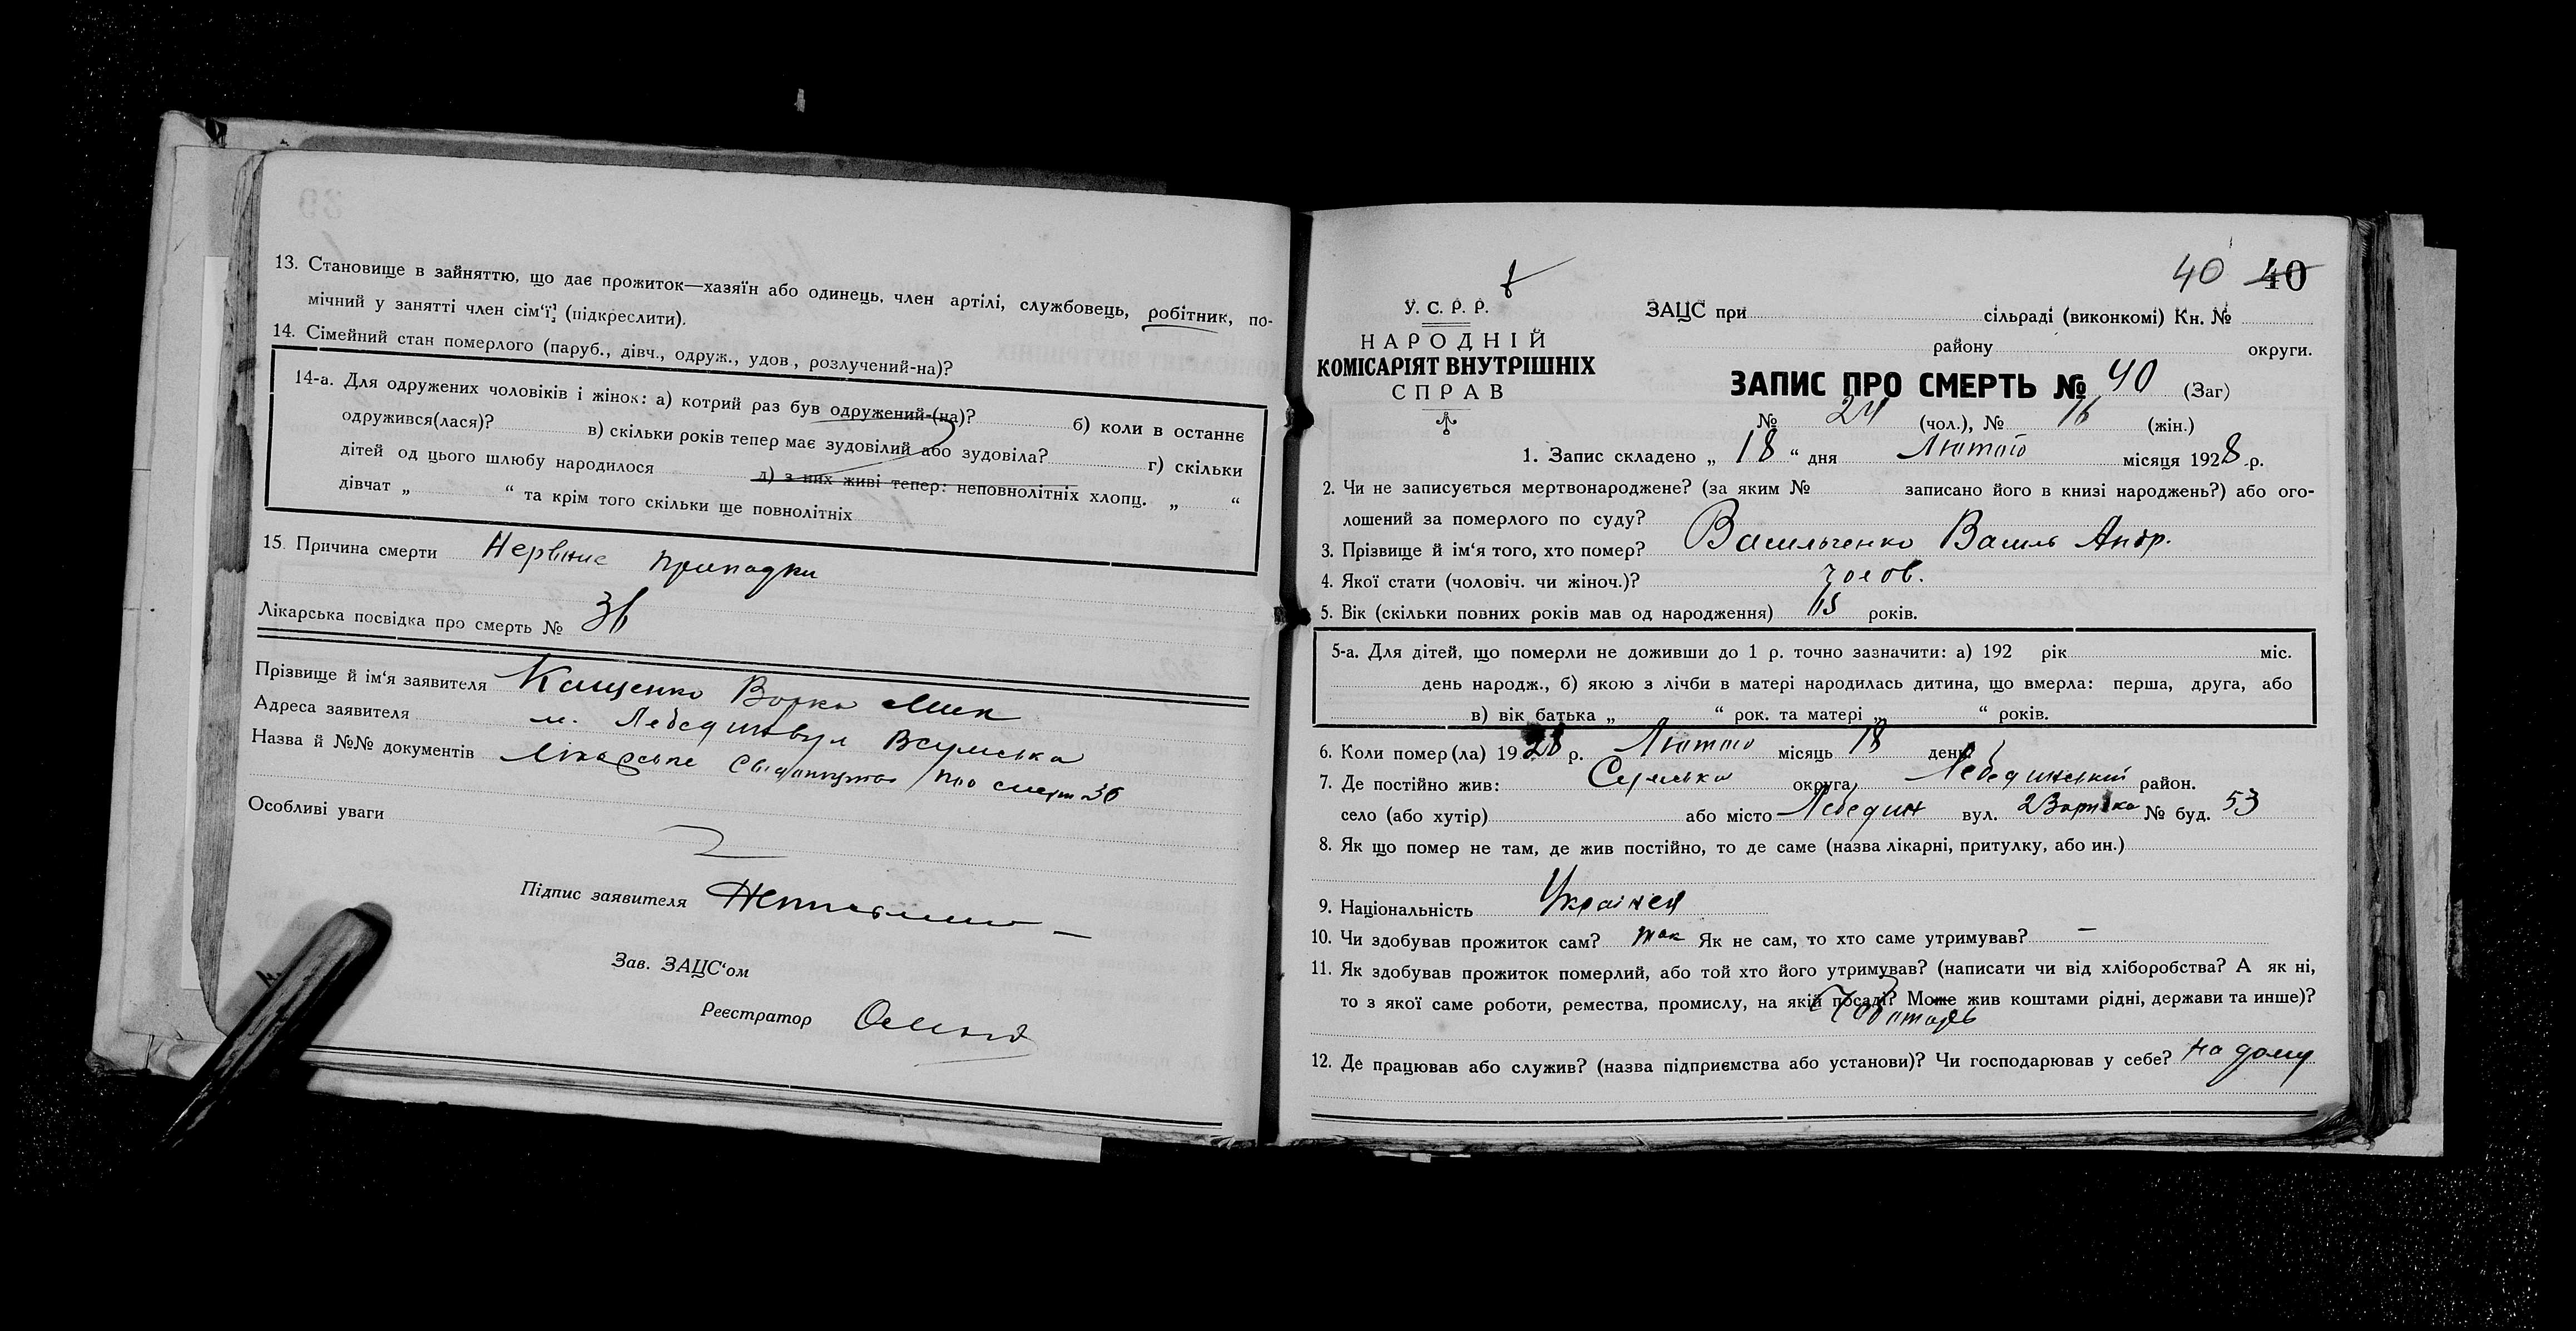 13. Становище в зайняттю, що дає прожиток—хазяїн або одинець, член артілі, службовець, робітник, по-
мічний у занятті член сім'ї, (підкреслити).
14. Сімейний стан померлого (паруб., дівч., одруж., удов., розлучений-на)?
14-а. Для одружених чоловіків і жінок: а) котрий раз був одружений-(на)? б) коли в останнє
одружився(лася)? в) скільки років тепер має зудовілий або зудовіла? г) скільки
дітей од цього шлюбу народилося д) з них живі тепер: неповнолітніх хлопц. „ “
дівчат „ “ та крім того скільки ще повнолітніх
15. Причина смерти Нервние припадки
Лікарська посвідка про смерть № 36
Прізвище й ім'я заявителя Кащенко
Адреса заявителя м. Лебедин вул
Назва й №№ документів Лікарське про смерт 36
Особливі уваги
Підпис заявителя
Зав. ЗАЦС'ом
Реєстратор
40 40
У. С. Р. Р.
НАРОДНІЙ
КОМІСАРІЯТ ВНУТРІШНІХ
СПРАВ
ЗАЦС при сільраді (виконкомі) Кн. №
району округи.
ЗАПИС ПРО СМЕРТЬ № 40 (Заг)
№ 24 (чол.), № 16 (жін.)
1. Запис складено „ 18 “ дня Лютого місяця 1928 р.
2. Чи не записується мертвонароджене? (за яким № записано його в книзі народжень?) або ого-
лошений за померлого по суду?
3. Прізвище й ім'я того, хто помер? Васильченко Василь Андр.
4. Якої стати (чоловіч. чи жіноч.)? чолов.
5. Вік (скільки повних років мав од народження) років.
5-а. Для дітей, що померли не доживши до 1 р. точно зазначити: а) 192 рік міс.
день народж., б) якою з лічби в матері народилась дитина, що вмерла: перша, друга, або
в) вік батька „ “ рок. та матері „ “ років.
6. Коли помер(ла) 1928 р. Лютого місяць 18 день
7. Де постійно жив: Сумська округа, Лебединський район.
село (або хутір) або місто Лебедин вул. № буд. 53
8. Як що помер не там, де жив постійно, то де саме (назва лікарні, притулку, або ин.)
9. Національність Українец
10. Чи здобував прожиток сам? так Як не сам, то хто саме утримував? —
11. Як здобував прожиток померлий, або той хто його утримував? (написати чи від хліборобства? А як ні,
то з якої саме роботи, ремества, промислу, на якій посаді? Може жив коштами рідні, держави та инше)?
12. Де працював або служив? (назва підприємства або установи)? Чи господарював у себе? на дому